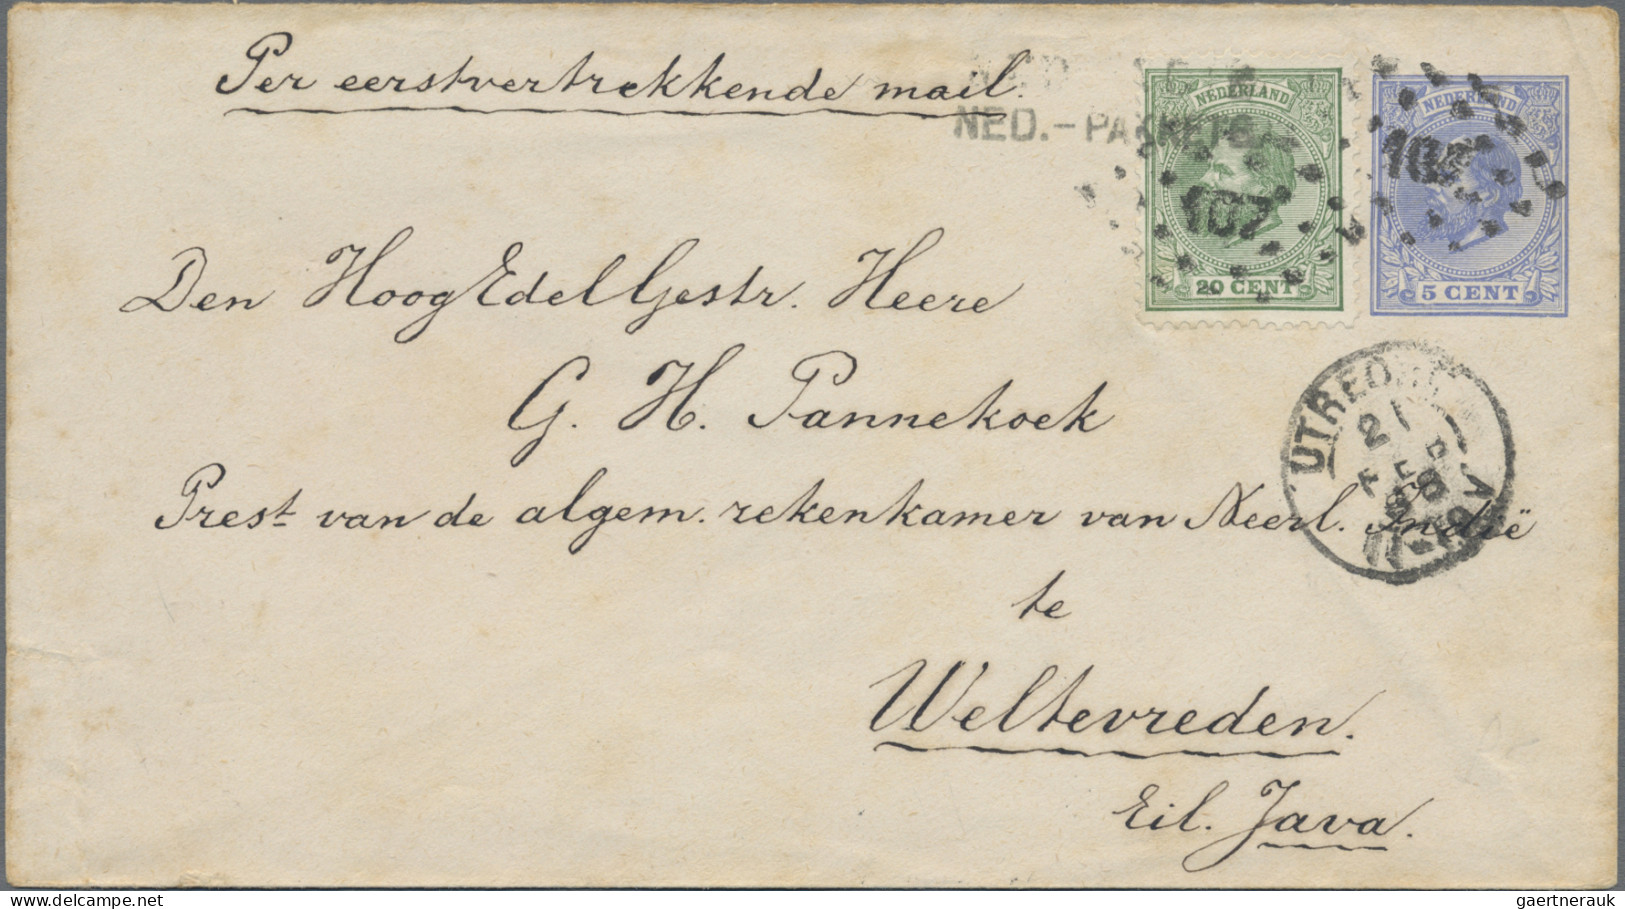 Per eerstvertrekkende mail.
NED.-PAKKETB
NEDERLAND
107
20 CENT
NEDERLAND
5 CENT
Den HoogEdelGestr. Heere
G. H. Pannekoek
UTRECHT
21
FEB
88
Prest van de algem. rekenkamer van Neerl. Indië
te
Weltevreden.
Eil. Java.
delcampe.net
gaertnerauk